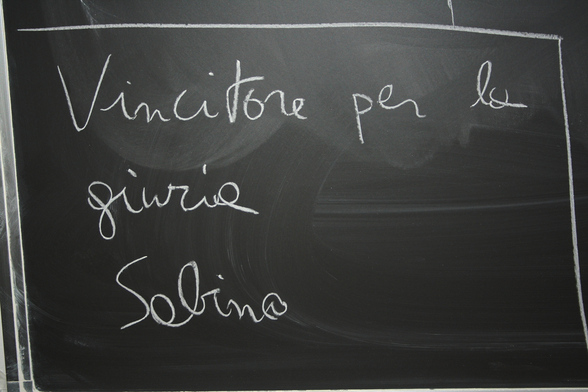 Vincitore per la
giuria
Sabino